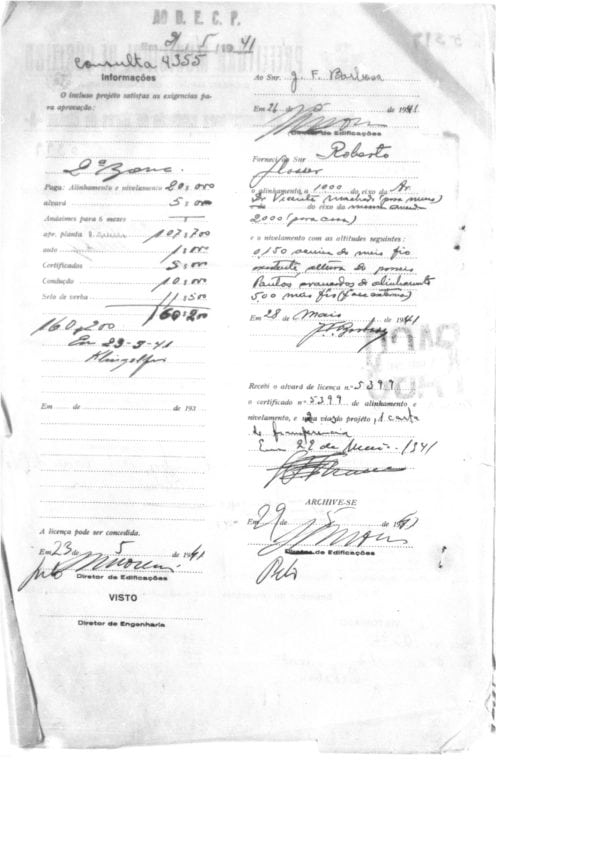 AO D. E. C. P.
Em 2/5/1941
Consulta 4355
Informações
O incluso projéto satisfas as exigencias pa-
ra aprovação:
2ª Zona.
Paga: Alinhamento e nivelamento 20:000
alvará 5:000
Andaimes para 6 mezes
apr. planta 107:700
auto 1:000
Certificados 5:000
Condução 10:000
Selo de verba 11:500
160:200
160:200
Em 23-5-41
Em de de 193
A licença póde ser concedida.
Em 23 de 5 de 1941
Diretor de Edificações
VISTO
Diretor de Engenharia
Ao Snr. J. F. Barbosa
Em 26 de 5 de 1941
Diretor de Edificações
Forneci ao Snr Roberto
o alinhamento a 1000 do eixo da Av.
Dr Vicente Machado (para muro)
do eixo da mesma avenida
2000 (para casa)
e o nivelamento com as altitudes seguintes:
0,150 acima do meio fio
existente, altura do
alinhamento
500 meio fio (face externa)
Em 28 de Maio de 1941
Recebi o alvará de licença n.º 5399
o certificado n.º 5399 de alinhamento e
nivelamento, e 2 vias do projéto, 1 carta
de transferencia
Em 29 de Maio 1941
ARCHIVE-SE
Em 29 de 5 de 1941
Diretor de Edificações